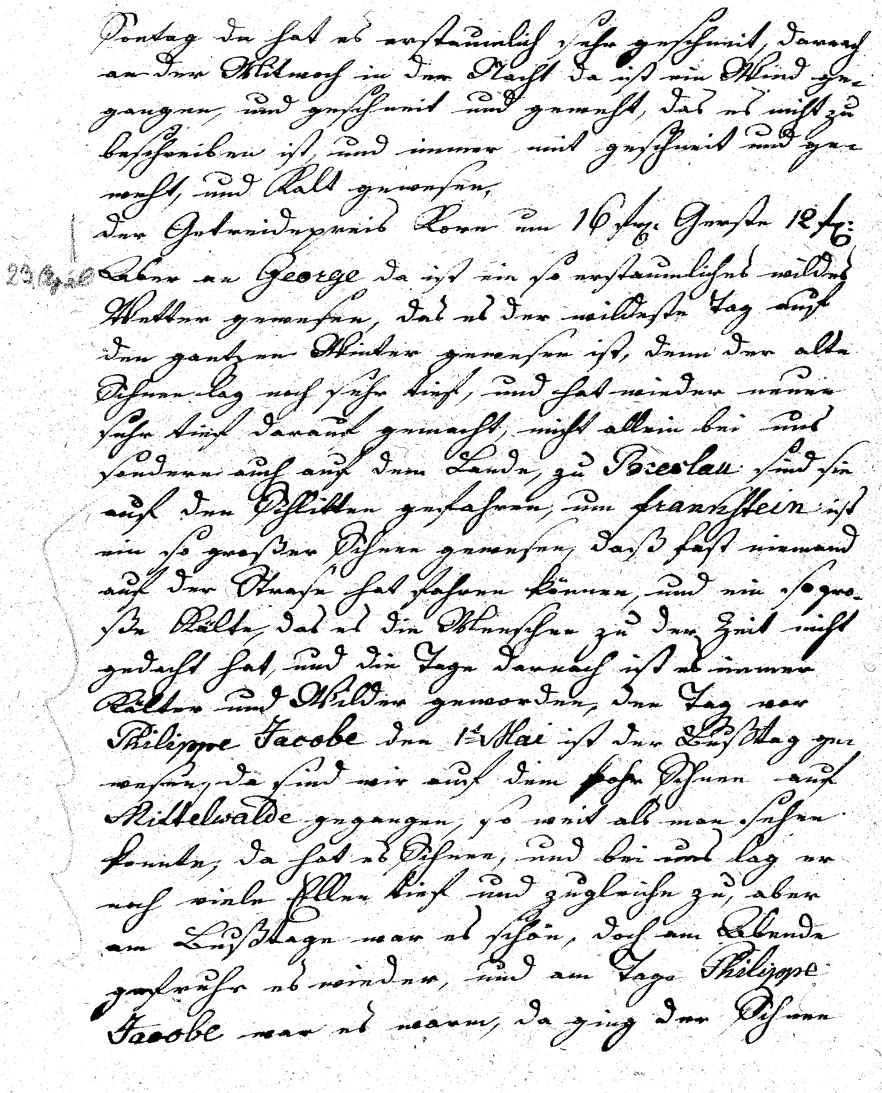 Sontag da hat es erstaunlich sehr geschneit, darnach
an der Mitwoch in der Nacht da ist ein Wind ge-
gangen, und geschneit und geweht, das es nicht zu
beschreiben ist, und immer mit geschneit und ge-
weht, und Kalt gewesen,
der Getreidepreis Korn um 16 frx: Gerste 12 fx:
23 April
Aber an George da ist ein so erstaunliches wildes
Wetter gewesen, das es der wildeste Tag auf
den gantzen Winter gewesen ist, denn der alte
Schnee lag noch sehr tief, und hat wieder neuen
sehr tief darauf gemacht, nicht allein bei uns
sondern auch auf dem Lande, zu Breslau sind sie
auf den Schlitten gefahren, um frankstein ist
ein so großer Schnee gewesen, daß fast niemand
auf der Strase hat fahren können, und ein so gro-
ße Kälte, das es die Menschen zu der Zeit nicht
gedacht hat, und die Tage darnach ist es immer
Kälter und Wilder geworden, den Tag vor
Philippe Jacobe den 1t Mai ist der Bußtag ge-
wesen, da sind wir auf dem Schnee auf
Mittelwalde gegangen, so weit als man sehen
konnte, da hat es Schnee, und bei uns lag er
noch viele Ellen tief und zugleiche zu, aber
am Bußtage war es schön, doch am Abende
gefruhr es wieder, und am Tage Philippe
Jacobe war es warm, da ging der Schnee